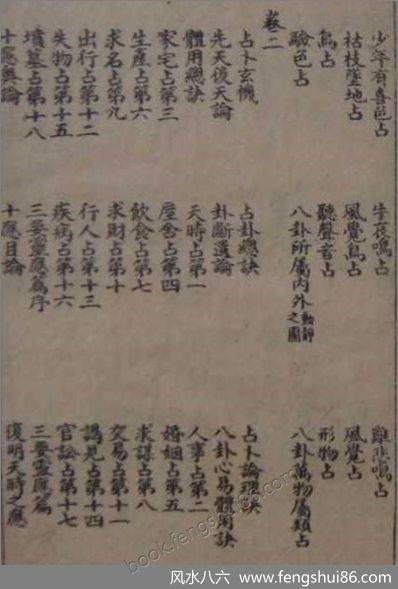 少年有喜色占 牛哀鳴占 雞悲鳴占
枯枝墜地占 風覺鳥占 風覺占
鳥占 聽聲音占 形物占
驗色占 八卦所屬內外動靜之圖 八卦萬物屬類占
卷二
占卜玄機 占卦總訣 占卜論理訣
先天後天論 卦斷遺論 八卦心易體用訣
體用總訣 天時占第一 人事占第二
家宅占第三 屋舍占第四 婚姻占第五
生產占第六 飲食占第七 求謀占第八
求名占第九 求財占第十 交易占第十一
出行占第十二 行人占第十三 謁見占第十四
失物占第十五 疾病占第十六 官訟占第十七
墳墓占第十八 三要靈應篇序 三要靈應篇
十應奧論 十應目論 復明天時之應
book.fengshui86.com
风水八六 www.fengshui86.com